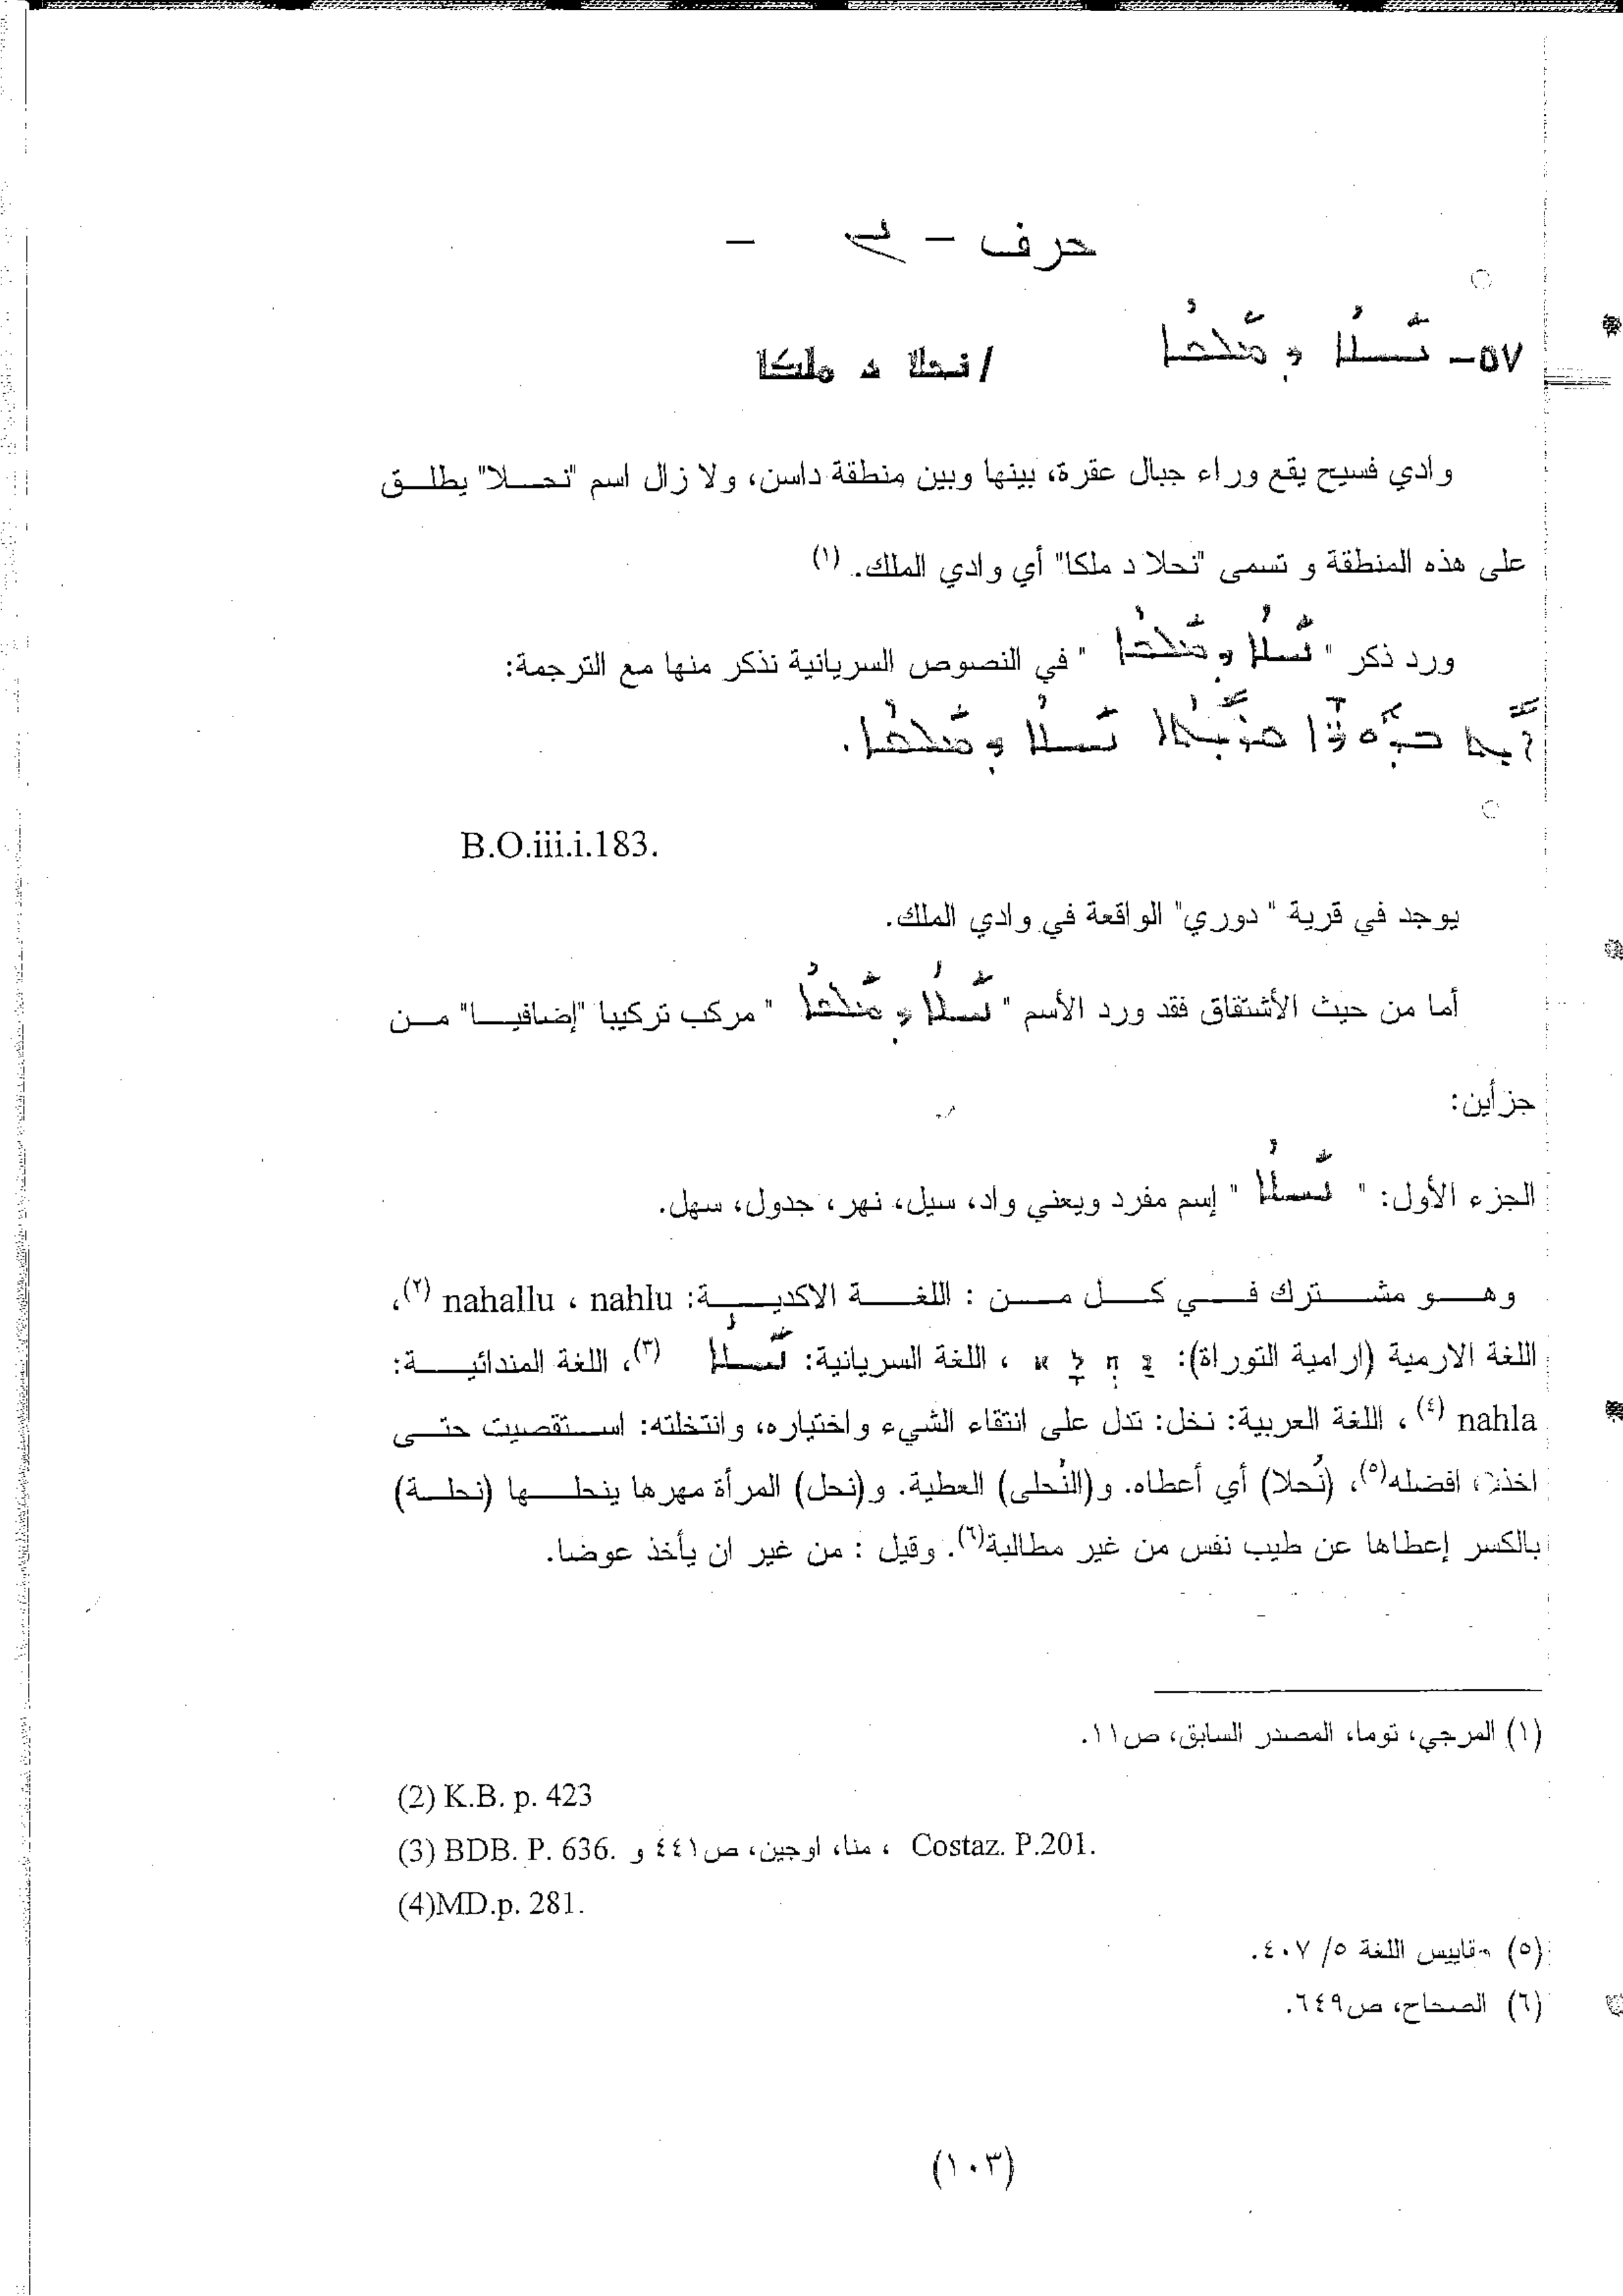 حرف - ܢ -
٥٧- ܢܚܠܐ ܕܡܠܟܐ / نحلا د ملكا
وادي فسيح يقع وراء جبال عقرة، بينها وبين منطقة داسن، ولا زال اسم "نحلا" يطلق
على هذه المنطقة و تسمى "نحلا د ملكا" أي وادي الملك. (١)
ورد ذكر " ܢܚܠܐ ܕܡܠܟܐ " في النصوص السريانية نذكر منها مع الترجمة:
ܐܝܬ ܒܕܘܪܐ ܩܪܝܬܐ ܢܚܠܐ ܕܡܠܟܐ.
B.O.iii.i.183.
يوجد في قرية " دوري" الواقعة في وادي الملك.
أما من حيث الأشتقاق فقد ورد الأسم " ܢܚܠܐ ܕܡܠܟܐ " مركب تركيبا "إضافيا" من
جزأين:
الجزء الأول: " ܢܚܠܐ " إسم مفرد ويعني واد، سيل، نهر، جدول، سهل.
وهو مشترك في كل من : اللغة الاكدية: nahallu ، nahlu (٢)،
اللغة الارمية (ارامية التوراة): נ חְ לָ א ، اللغة السريانية: ܢܚܠܐ (٣)، اللغة المندائية:
nahla (٤) ، اللغة العربية: نخل: تدل على انتقاء الشيء واختياره، وانتخلته: استقصيت حتى
اخذت افضله(٥)، (نُحلا) أي أعطاه. و(النُحلى) العطية. و(نحل) المرأة مهرها ينحلها (نحلة)
بالكسر إعطاها عن طيب نفس من غير مطالبة(٦). وقيل : من غير ان يأخذ عوضا.
(١) المرجي، توما، المصدر السابق، ص١١.
(2) K.B. p. 423
(3) BDB. P. 636. و منا، اوجين، ص٤٤١ ، Costaz. P.201.
(4)MD.p. 281.
(٥) مقاييس اللغة ٥/ ٤٠٧.
(٦) الصحاح، ص٦٤٩.
(١٠٣)